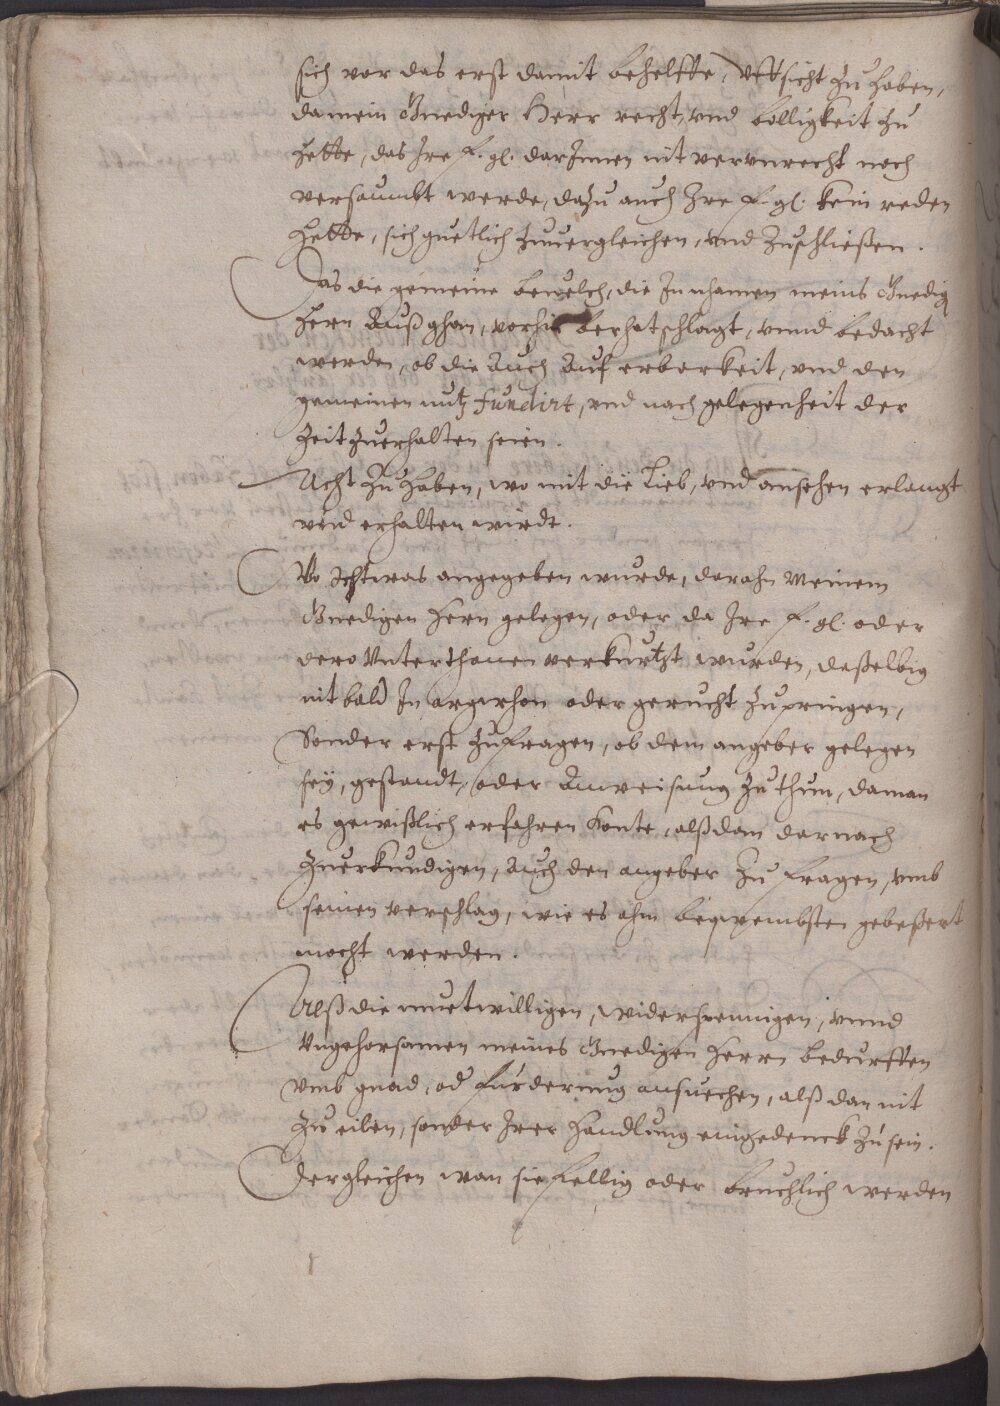 sich vor das erst damit behelffe, Uffsicht zu haben,
da mein Gnediger Herr recht, und billigkeit zu
hette, das Ire f. gl. darInnen nit verunrecht noch
versaumbt werde, dazu auch Ire f. gl. kein reden
hette, sich guetlich zuuergleichen, und zuschließen.
Das die gemeine beuelch, die In nhamen meins Gnedig
Hern Außghan, vorhin berhatschlagt, unnd bedacht
werden, ob die Auch Auf erberkeit, und den
gemeinen nutz fundirt, und nach gelegenheit der
Zeit zuerhalten seien.
Acht zu haben, wo mit die Lieb, und ansehen erlangt
und erhalten wirdt.
Wo Ichtwas angegeben wurde, darahn Meinem
Gnedigen Hern gelegen, oder da Ire f. gl. oder
dero Unterthanen verkurtzt wurden, dasselbig
nit bald In argwhon oder gerucht zupringen,
Sonder erst zufragen, ob dem angeber gelegen
sey, gestandt, oder Anweisung zu thun, daman
es gewißlich erfahren konte, alßdan darnach
zuerkundigen, Auch den angeber zu fragen, umb
seinen verschlag, wie es ahm bequembsten gebeßert
mocht werden.
die muetwilligen, widerspennigen, unnd
Ungehorsamen meines Gnedigen Herrn bedurfften
umb gnad, od furderung ansuechen, alß dan nit
zu eilen, sonder Irer handlung eingedenck zu sein.
Dergleichen wan sie fellig oder bruchlich werden